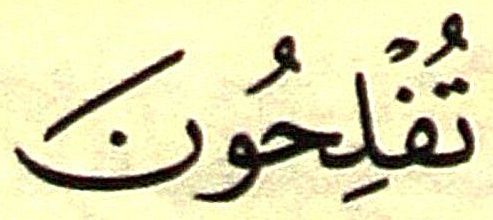 تُفْلِحُونَ